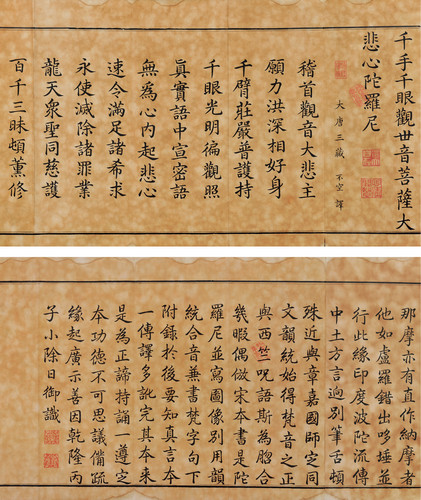 千手千眼觀世音菩薩大
悲心陀羅尼
大唐三藏 不空 譯
稽首觀音大悲主
願力洪深相好身
千臂莊嚴普護持
千眼光明徧觀照
真實語中宣密語
無為心內起悲心
速令滿足諸希求
永使滅除諸罪業
龍天衆聖同慈護
百千三昧頓薰修
那摩亦有直作納摩者
他如虛羅錯出哆埵並
行此緣印度波陀流傳
中土方言逈別筆舌頓
殊近與章嘉國師定同
文韻統始得梵音之正
與西竺呪語斯為脗合
幾暇偶倣宋本書是陀
羅尼並寫圖像別用韻
統合音兼書梵字句下
附錄於後要知真言本
一傳譯多訛完其本来
是為正諦持誦一遵之
夲功德不可思議備疏
緣起廣示善因乾隆丙
子小除日御識